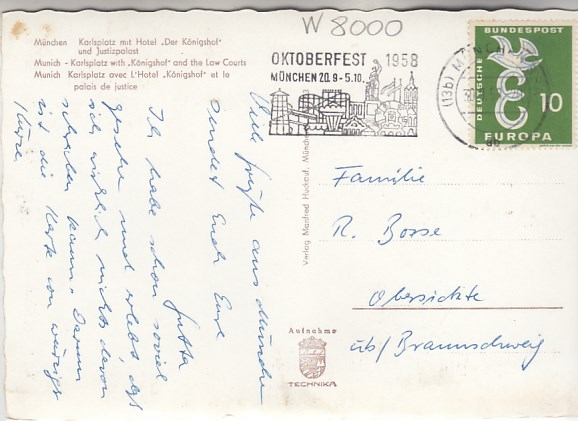 W 8000
München Karlsplatz mit Hotel „Der Königshof"
und Justizpalast
Munich - Karlsplatz with „Königshof" and the Law Courts
Munich Karlsplatz avec L'Hotel „Königshof" et le
palais de justice
OKTOBERFEST 1958
MÜNCHEN 20.9.-5.10.
(13b) MÜNCH
DEUTSCHE BUNDESPOST
10
EUROPA
Viele Grüße aus München
sendet Euch Eure
Jutta
Ich habe schon soviel
gesehen und erlebt, daß
ich wirklich nichts davon
schreiben kann. Darum
ist die Karte von wenigst
Kürze.
Verlag Manfred Huckauf, München
Familie
R. Bosse
Obersickte
üb/ Braunschweig
Aufnahme
TECHNIKA